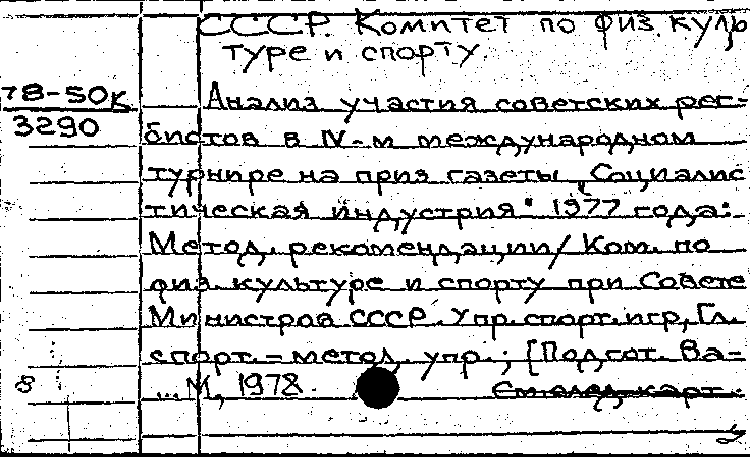 СССР. Комитет по физ. куль
туре и спорту.
78-50к
3290
Анализ участия советских рег-
бистов в IV-м международном
турнире на приз газеты „Социалис
тическая индустрия" 1977 года:
Метод. рекомендации/ Ком. по
физ. культуре и спорту при Совете
Министров СССР. Упр. спорт. игр, Гл.
спорт.-метод. упр.; [Подгот. Ва-
... М, 1978.
См. след. карт.
8